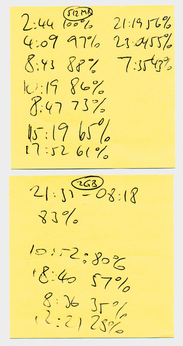 512 MB
2:44 100%
4:09 97%
8:43 88%
10:19 86%
8:47 73%
15:19 65%
17:52 61%
21:19 56%
23:04 55%
7:35 43%
2GB
21:35 - 08:18
83%
10:52: 80%
18:40 57%
8:36 35%
12:21 28%